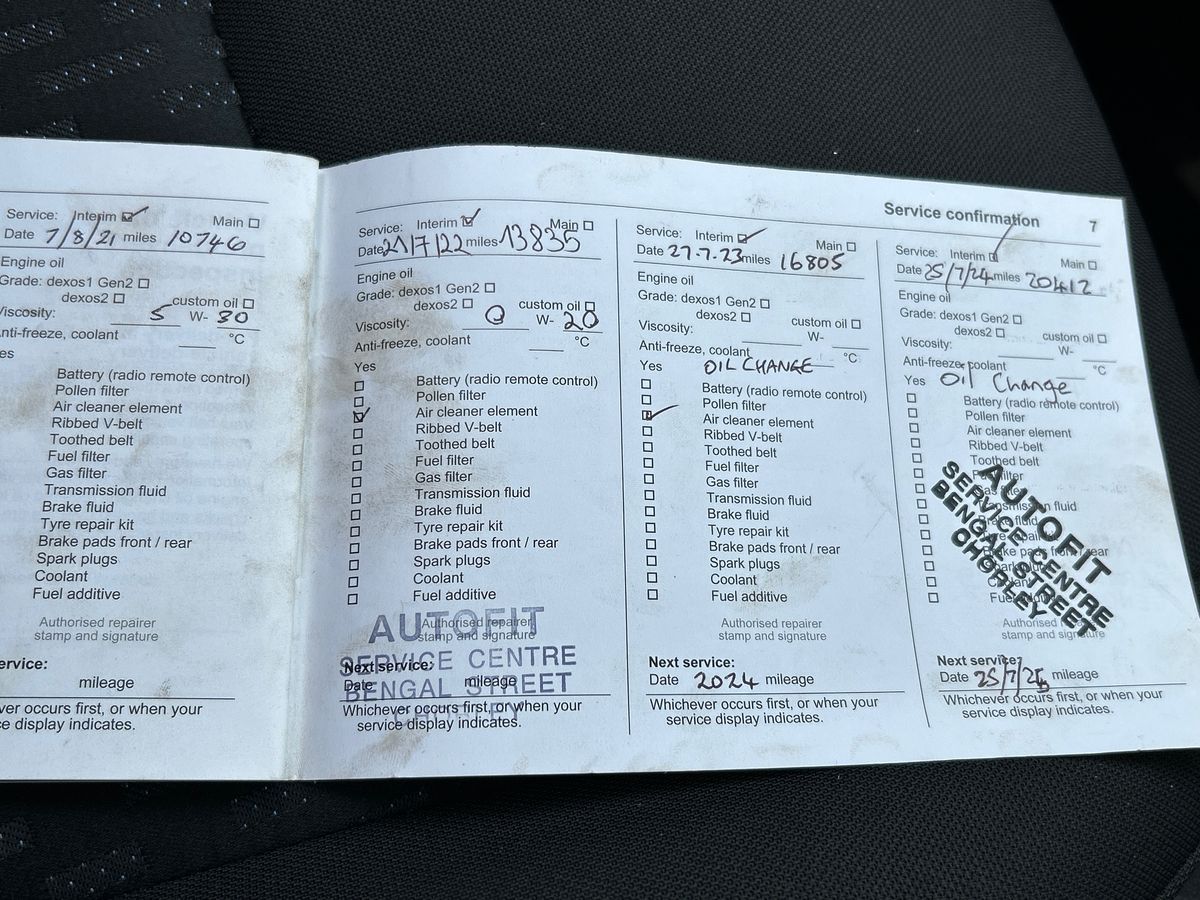 Service confirmation 7
Service: Interim ☑ Main ☐
Date 7/8/21 miles 10746
Engine oil
Grade: dexos1 Gen2 ☐
dexos2 ☐ custom oil ☐
Viscosity: 5 W- 30
Anti-freeze, coolant ___ °C
es
Battery (radio remote control)
Pollen filter
Air cleaner element
Ribbed V-belt
Toothed belt
Fuel filter
Gas filter
Transmission fluid
Brake fluid
Tyre repair kit
Brake pads front / rear
Spark plugs
Coolant
Fuel additive
Authorised repairer
stamp and signature
ervice:
mileage
ver occurs first, or when your
ce display indicates.
Service: Interim ☑ Main ☐
Date 21/7/22 miles 13835
Engine oil
Grade: dexos1 Gen2 ☐
dexos2 ☐ custom oil ☐
Viscosity: 0 W- 20
Anti-freeze, coolant ___ °C
Yes
☐ Battery (radio remote control)
☐ Pollen filter
☑ Air cleaner element
☐ Ribbed V-belt
☐ Toothed belt
☐ Fuel filter
☐ Gas filter
☐ Transmission fluid
☐ Brake fluid
☐ Tyre repair kit
☐ Brake pads front / rear
☐ Spark plugs
☐ Coolant
☐ Fuel additive
Authorised repairer
stamp and signature
AUTOFIT
SERVICE CENTRE
BENGAL STREET
Next service:
Date mileage
Whichever occurs first, or when your
service display indicates.
Service: Interim ☑ Main ☐
Date 27.7.23 miles 16805
Engine oil
Grade: dexos1 Gen2 ☐
dexos2 ☐ custom oil ☐
Viscosity: W-
Anti-freeze, coolant °C
Yes OIL CHANGE
☐ Battery (radio remote control)
☐ Pollen filter
☑ Air cleaner element
☐ Ribbed V-belt
☐ Toothed belt
☐ Fuel filter
☐ Gas filter
☐ Transmission fluid
☐ Brake fluid
☐ Tyre repair kit
☐ Brake pads front / rear
☐ Spark plugs
☐ Coolant
☐ Fuel additive
Authorised repairer
stamp and signature
Next service:
Date 2024 mileage
Whichever occurs first, or when your
service display indicates.
Service: Interim ☑ Main ☐
Date 25/7/24 miles 20412
Engine oil
Grade: dexos1 Gen2 ☐
dexos2 ☐ custom oil ☐
Viscosity: W-
Anti-freeze, coolant °C
Yes Oil Change
☐ Battery (radio remote control)
☐ Pollen filter
☐ Air cleaner element
☐ Ribbed V-belt
☐ Toothed belt
AUTOFIT
SERVICE CENTRE
BENGAL STREET
CHORLEY
Authorised repairer
stamp and signature
Next service:
Date 25/7/25 mileage
Whichever occurs first, or when your
service display indicates.